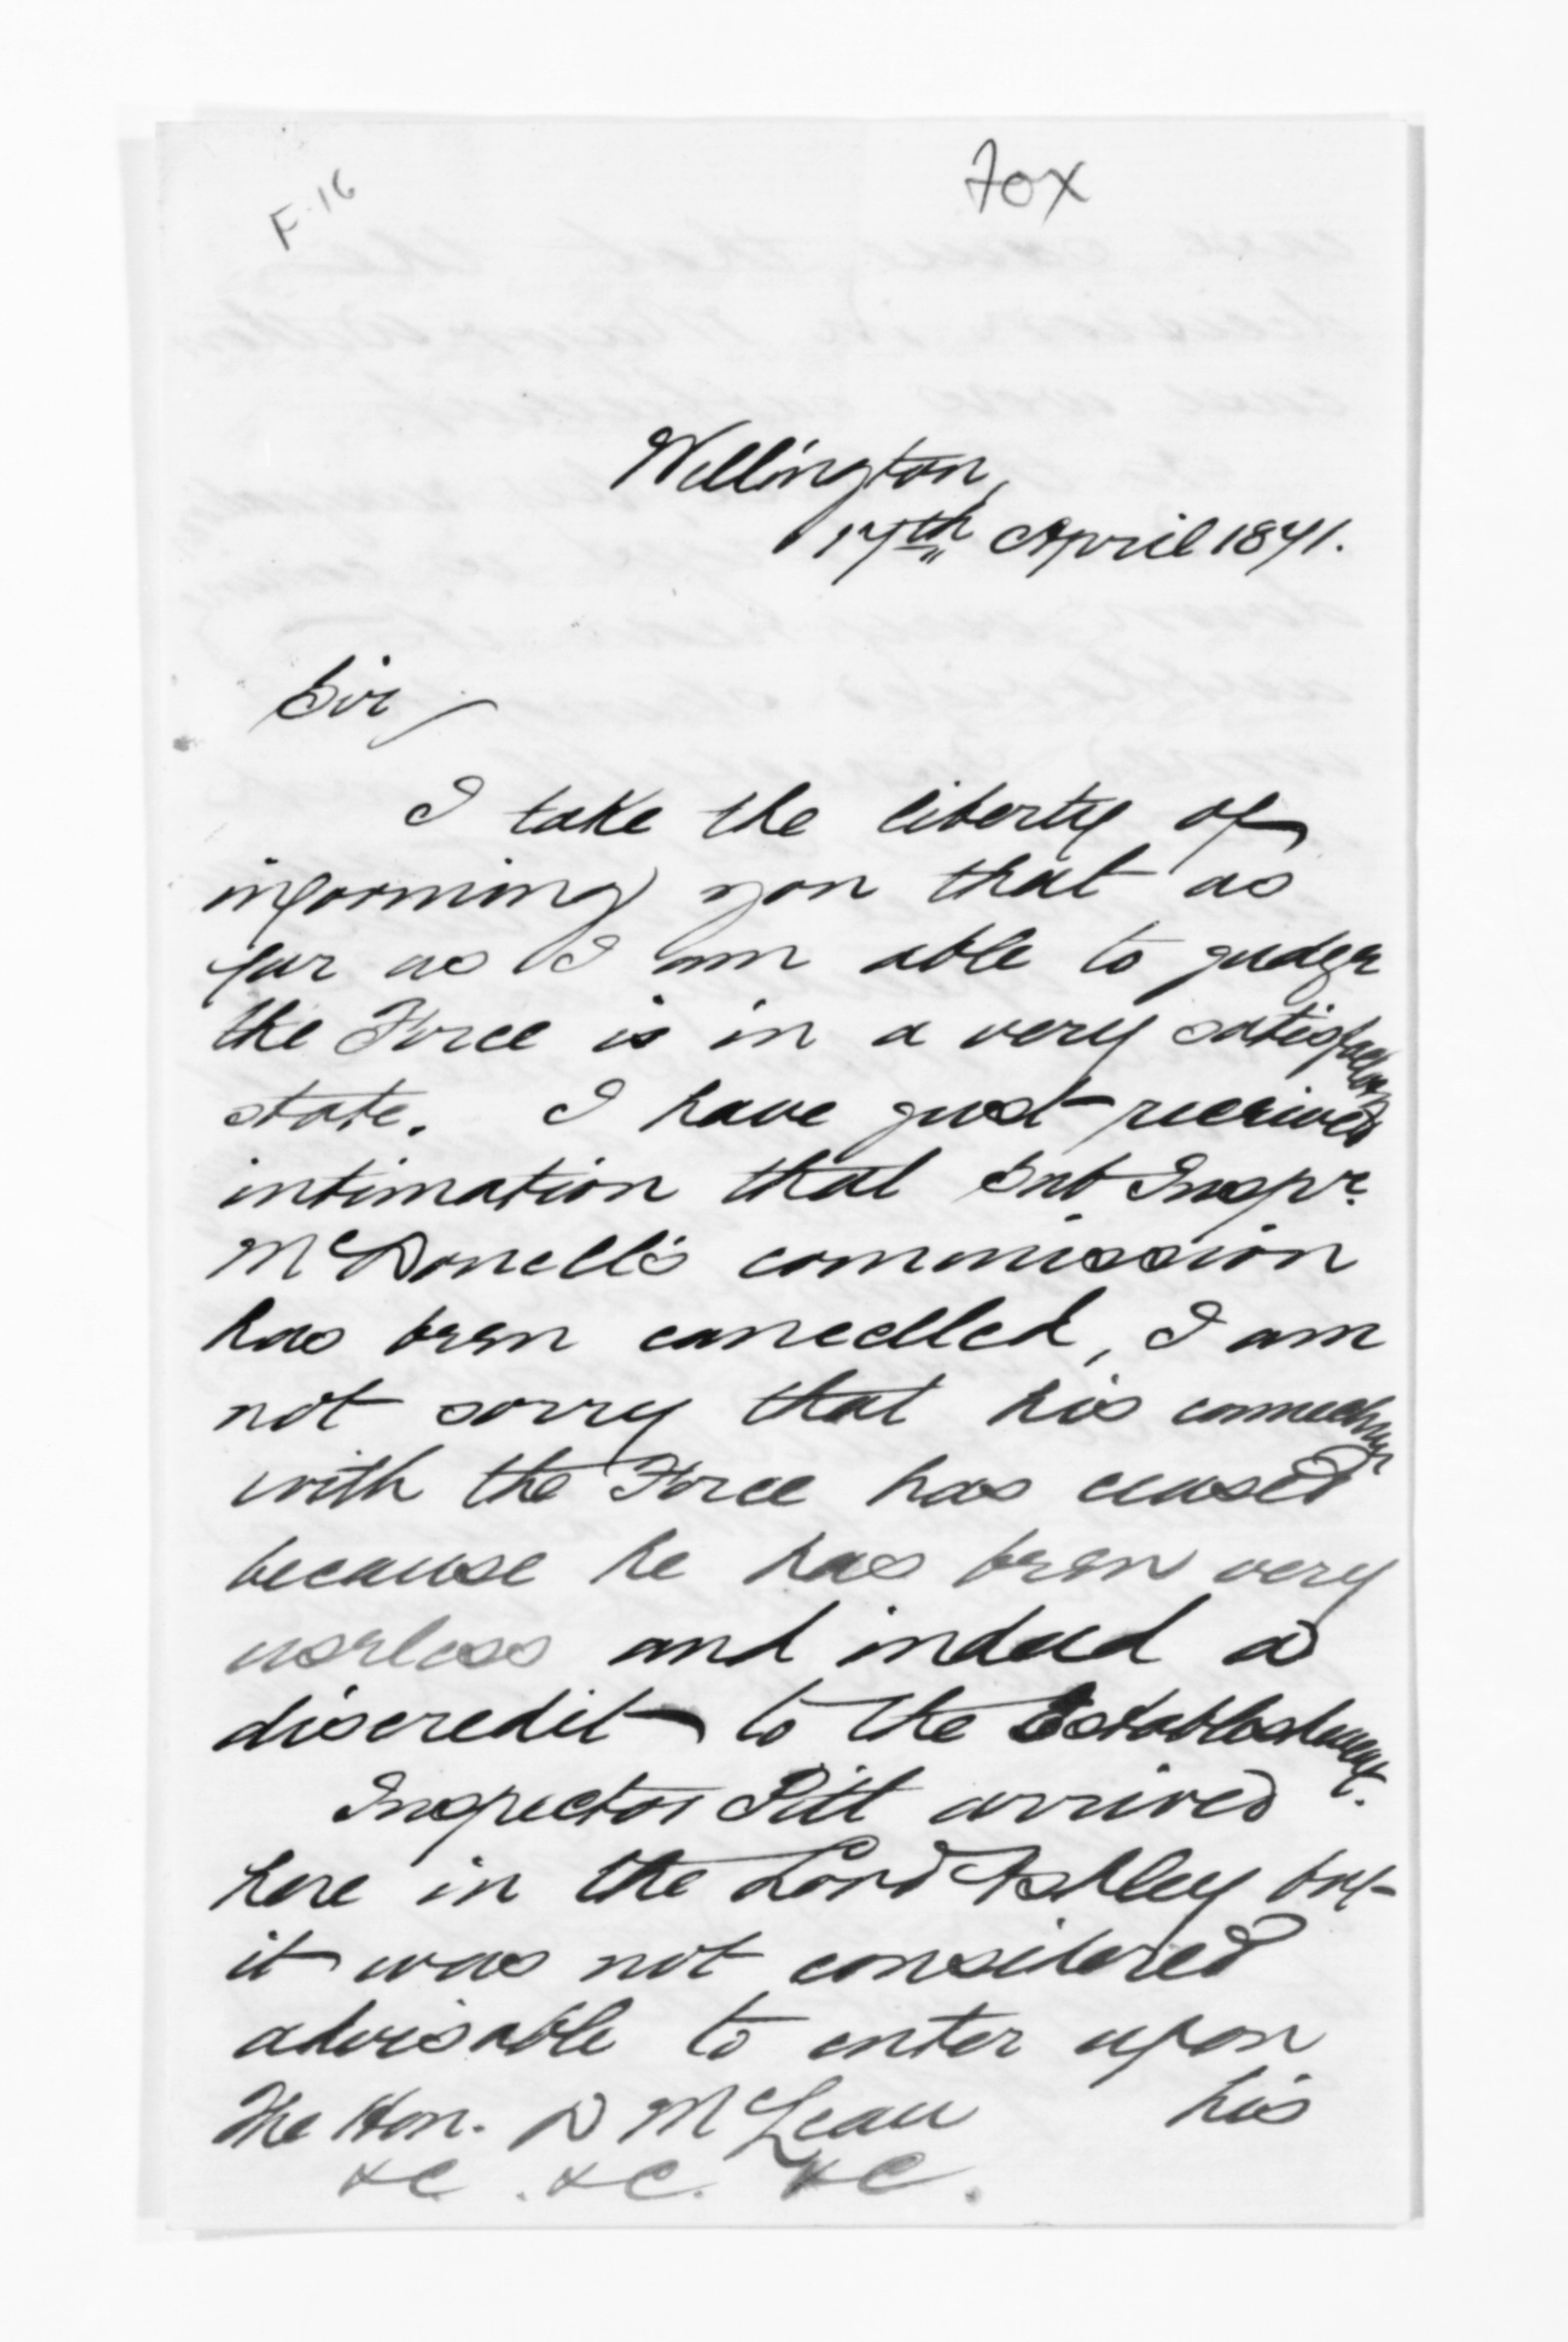 F-16
Fox
Wellington,
17th April 1871.
Sir,
I take the liberty of
informing you that as
far as I am able to judge
the Force is in a very satisfactory
state. I have just received
intimation that Sub Inspr.
McDonell's commission
has been cancelled, I am
not sorry that his connection
with the Force has ceased
because he has been very
useless and indeed a
discredit to the Establishment.
Inspector Pitt arrived
here in the Lord Ashley but
it was not considered
advisable to enter upon
his
The Hon. D McLean
&c. &c. &c.